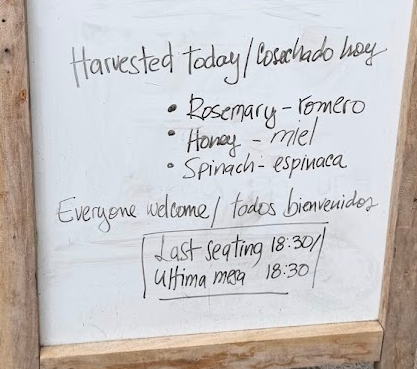 Harvested Today/Cosechado hoy
• Rosemary - romero
• Honey - miel
• Spinach - espinaca
Everyone welcome/ todos bienvenidos
Last seating 18:30/
Ultima mesa 18:30